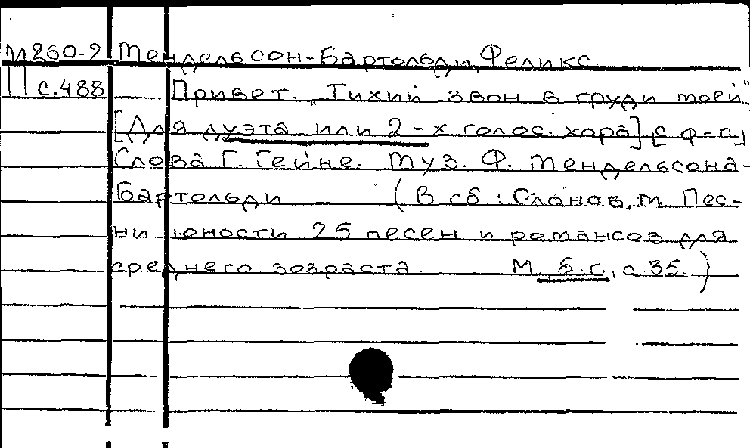 М 260-2 Мендельсон-Бартольди, Феликс
П с.488 Привет. "Тихий звон в груди моей"
[Для дуэта или 2-х голос. хора] [с ф-п]
Слова Г. Гейне. Муз. Ф. Мендельсона-
Бартольди (В сб: Сланов, М. Пес-
ни юности 25 песен и романсов для
среднего возраста М. Б.г., с 35.)